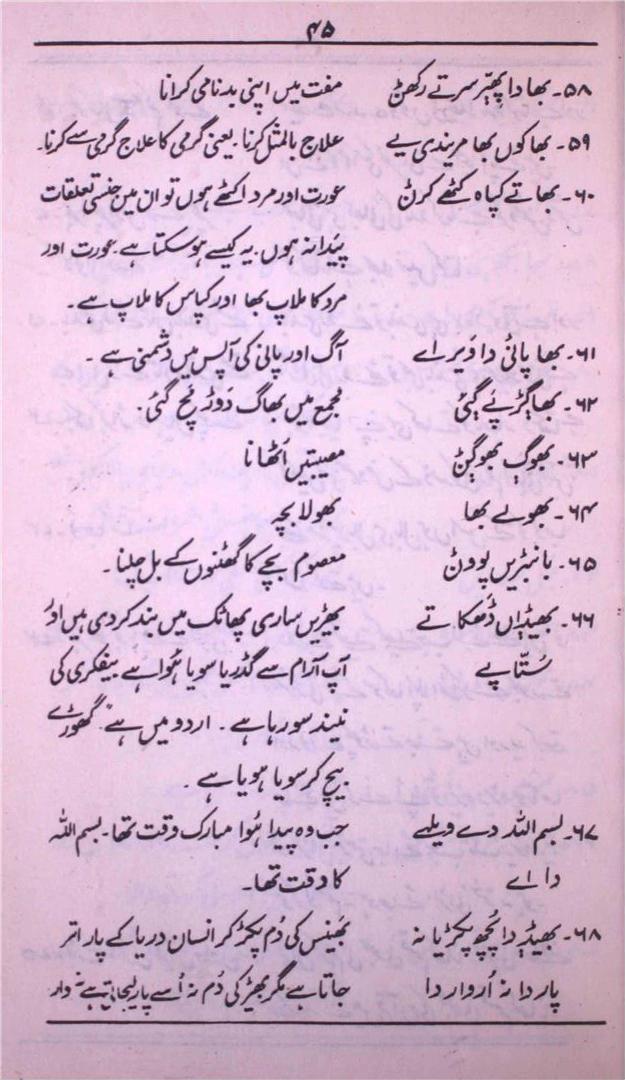 ۴۵
۵۸۔ بھا دا پھیّر سرتے رکھݨ مفت میں اپنی بدنامی کرانا
۵۹۔ بھا کوں بھا مریندی ہے علاج بالمثل کرنا۔ یعنی گرمی کا علاج گرمی سے کرنا۔
۶۰۔ بھاتے کپاہ کٹھے کرݨ عورت اور مرد اکٹھے ہوں تو ان میں جنسی تعلقات
پیدا نہ ہوں یہ کیسے ہو سکتا ہے۔ عورت اور
مرد کا ملاپ بھا اور کپاس کا ملاپ ہے۔
۶۱۔ بھا پاݨی دا وَیر اے آگ اور پانی کی آپس میں دشمنی ہے۔
۶۲۔ بھاگڑ پے گئی مجمع میں بھاگ دوڑ مچ گئی۔
۶۳۔ بھوگ بھوگݨ مصیبتیں اُٹھانا
۶۴۔ بھولے بھا بھولا بچہ
۶۵۔ پووݨ معصوم بچے کا گھٹنوں کے بل چلنا۔
۶۶۔ بھیڈاں ڈھکا تے بھیڑیں ساری پھاٹک میں بند کر دی ہیں اور
سُتّا پے آپ آرام سے گڈریا سویا ہُوا ہے بیفکری کی
نیند سو رہا ہے۔ اردو میں ہے "گھوڑے
بیچ کر سویا ہویا ہے۔
۶۷۔ بسم اللہ دے ویلے جب وہ پیدا ہُوا مبارک وقت تھا۔ بسم اللہ
دا اے کا وقت تھا۔
۶۸۔ بھیڈ دا پُچھ پکڑیا نہ بھَینس کی دُم پکڑ کر انسان دریا کے پار اتر
پار دا نہ اُروار دا جاتا ہے مگر بھیڑ کی دُم نہ اُسے پار لیجاتی ہے نہ وار